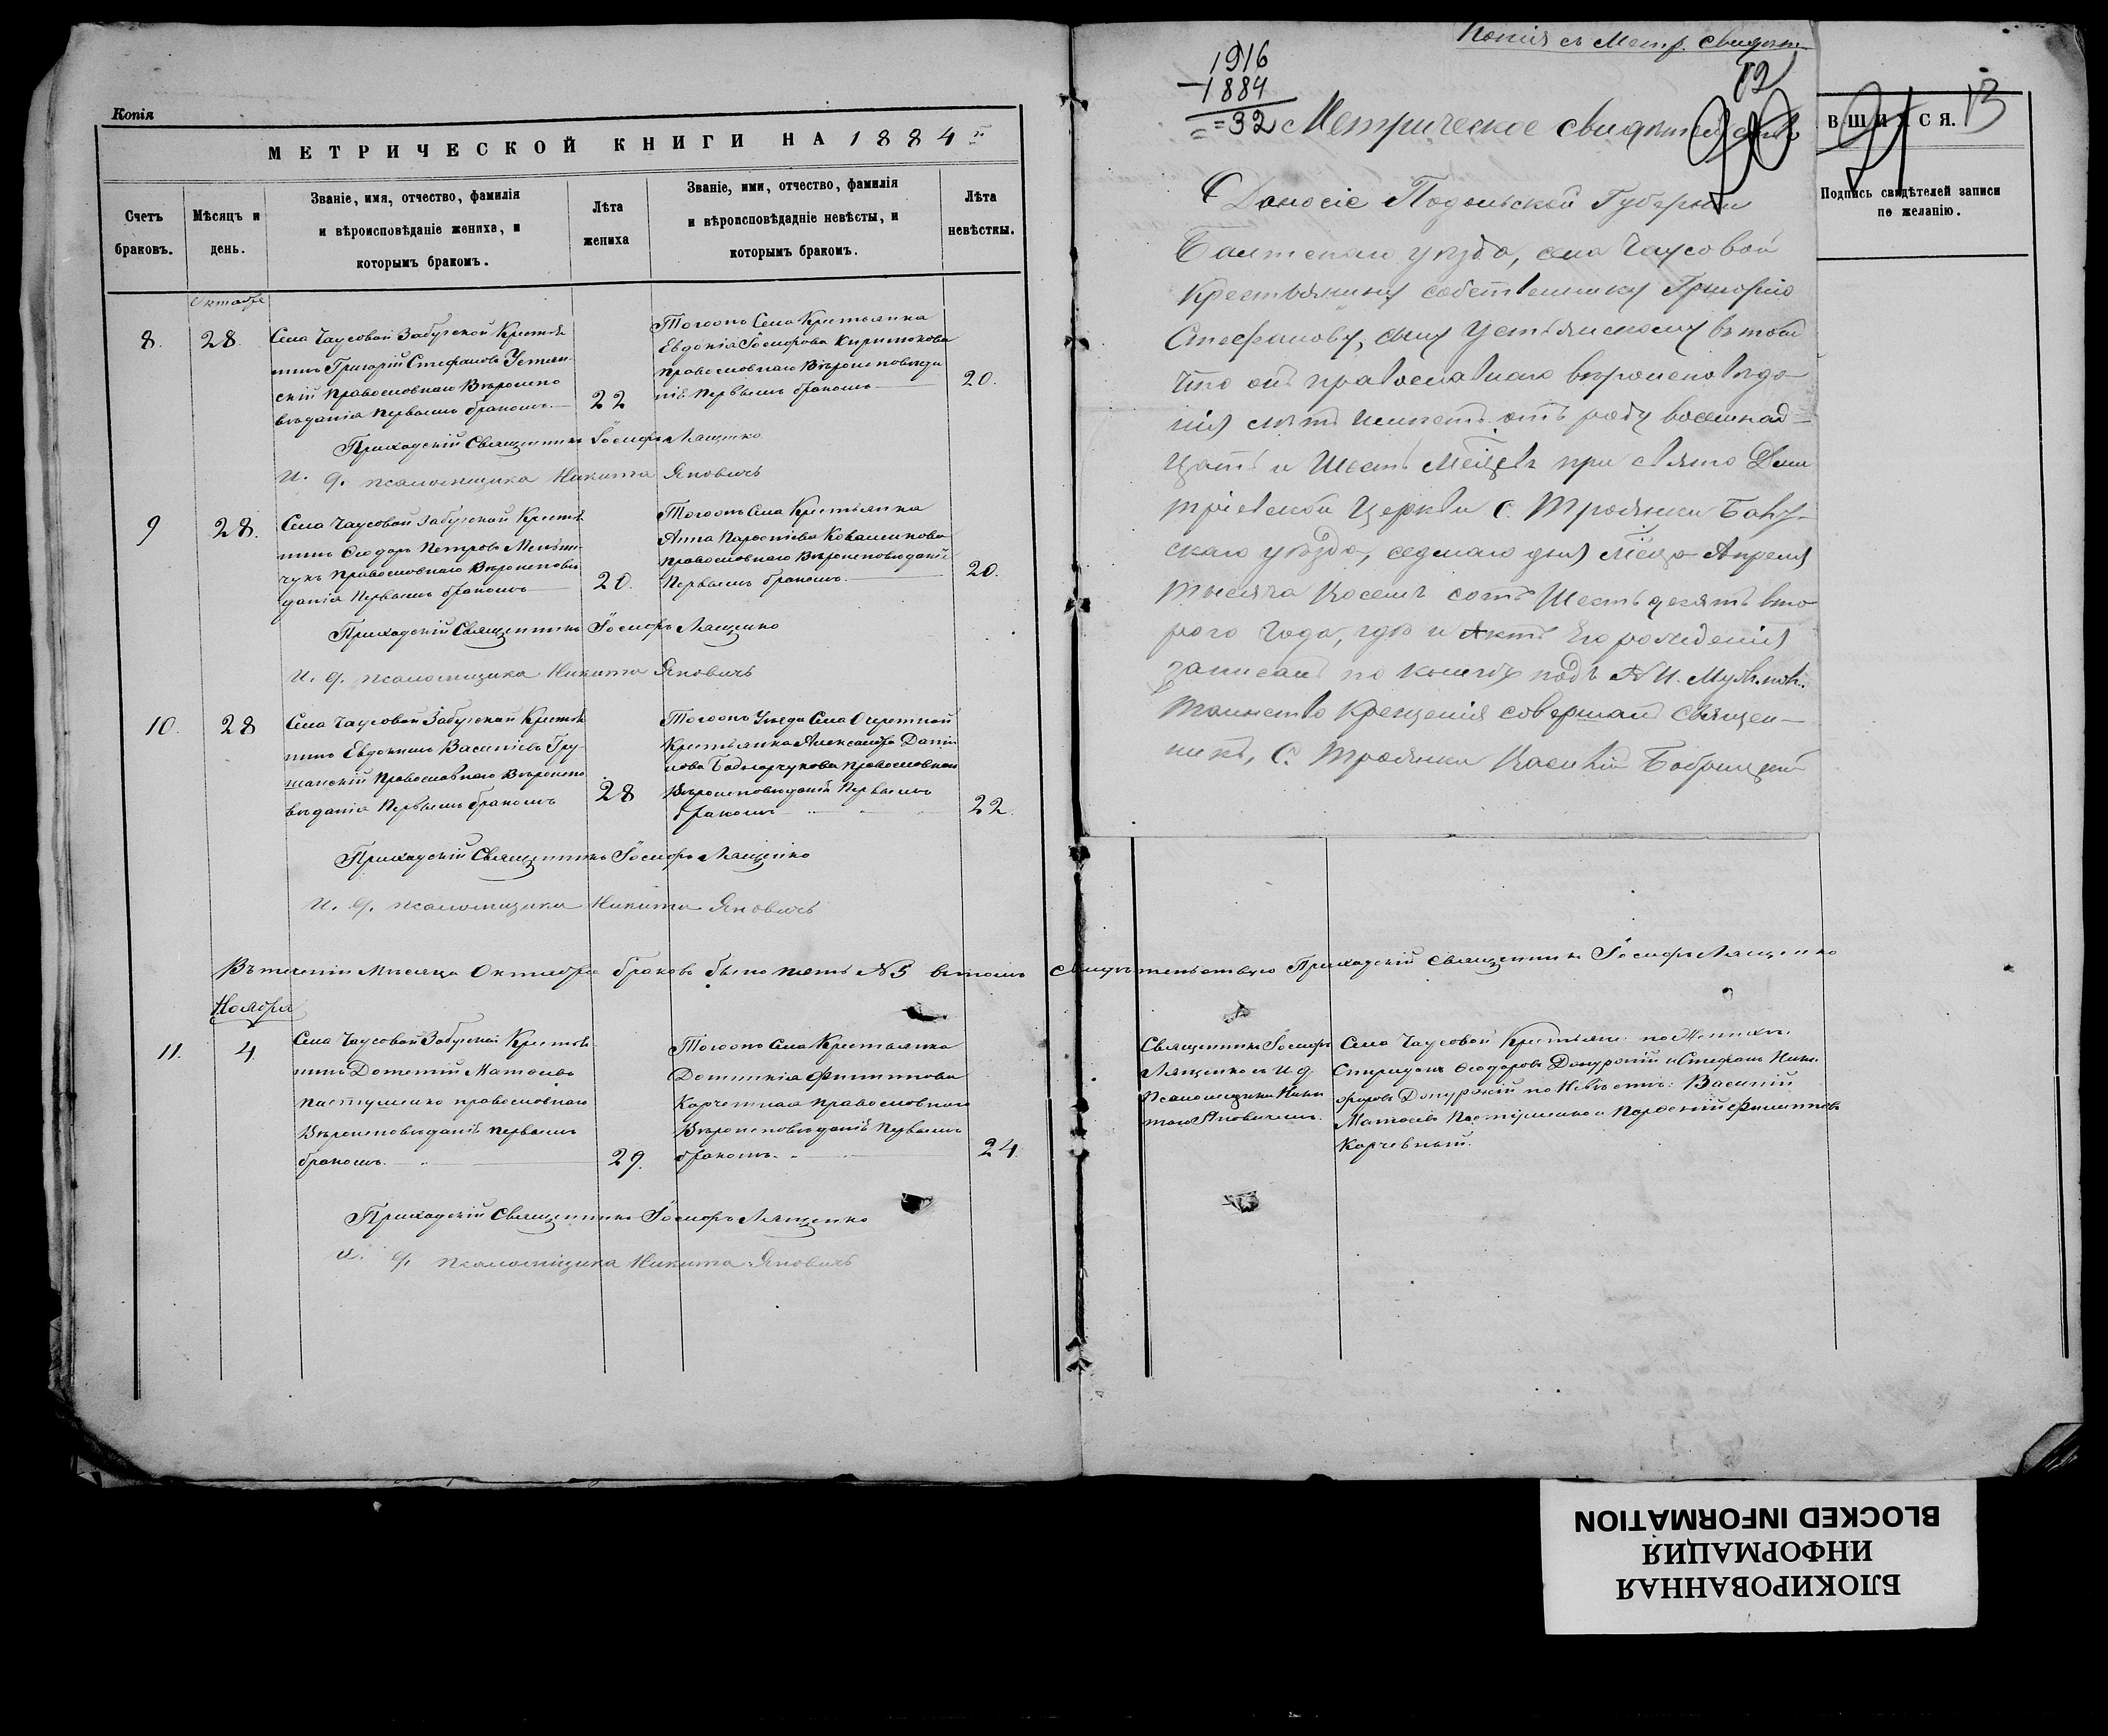 Копія
МЕТРИЧЕСКОЙ КНИГИ НА 1884 г.
Счетъ браковъ.
Мѣсяцъ и день.
Званіе, имя, отчество, фамилія и вѣроисповѣданіе жениха, и которымъ бракомъ.
Лѣта жениха
Званіе, имя, отчество, фамилія и вѣроисповѣдадніе невѣсты, и которымъ бракомъ.
Лѣта невѣсткы.
Октября
8.
28.
Села Чаусовой Забугской Крестья
нинъ Григорій Стефановъ Устян-
скій Православнаго Вѣроиспо
вѣданія Первымъ бракомъ
22
Тогожъ Села Крестьянка
Евдокія Іосифова
Православнаго Вѣроисповѣда
нія Первымъ бракомъ
20.
Приходскій Священникъ Іосифъ Лященко
И. д. псаломщика Никита Яновичъ
9
28.
Села Чаусовой Забугской Крестья
нинъ Ѳеодоръ Петровъ Мельни
чукъ Православнаго Вѣроисповѣ
данія Первымъ бракомъ
20.
Тогожъ Села Крестьянка
Анна Коваленкова
Православнаго Вѣроисповѣданія
Первымъ бракомъ.
20.
Приходскій Священникъ Іосифъ Лященко
И. д. псаломщика Никита Яновичъ
10.
28
Села Чаусовой Забугской Крестья
нинъ Евдокимъ Василіевъ Гру-
шанскій Православнаго Вѣроиспо
вѣданія Первымъ бракомъ
28
Тогожъ Уѣзда Села Очеретной
Крестьянка Александра Даніи
лова Боднарчукова Православнаго
Вѣроисповѣданія Первымъ
бракомъ
22.
Приходскій Священникъ Іосифъ Лященко
И. д. псаломщика Никита Яновичъ
Въ теченіи Мѣсяца Октября браковъ было пять №5 въ томъ свидѣтельствую Приходскій Священникъ Іосифъ Лященко
Ноября
11.
4.
Села Чаусовой Забугской Крестья
нинъ Матѳеевъ
Пастушенко православнаго
Вѣроисповѣданія первымъ
бракомъ.
29.
Тогожъ Села Крестьянка
Домникія Филиппова
Корчевная Православнаго
Вѣроисповѣданія Первымъ
бракомъ.
24
Священникъ Іосифъ
Лященко съ И. д.
Псаломщика Ники
тою Яновичемъ.
Села Чаусовой Крестьяне: по Женихѣ:
Спиридонъ Ѳеодоровъ и Стефанъ Ники
форовъ по Невѣстѣ: Василій
Матѳеевъ Пастушенко и Филипповъ
Корчевный.
Приходскій Священникъ Іосифъ Лященко
И. д. псаломщика Никита Яновичъ
Копія съ Метр. Свидѣт.
1916
1884
= 32
12
Метрическое свидѣтельство
Даносіе Подольской Губерніи
Балтскаго уѣзда, села Чаусовой
Крестьянину собственнику Григорію
Стефанову, сыну Устьянскому въ томъ
что онъ православнаго вѣроисповѣда-
нія лѣтъ имѣетъ отъ роду восемнад-
цать и Шесть Мѣсяцевъ при свято Дми
тріевской Церкви с. Трояники
скаго уѣзда, седмаго дня Мѣсяца Апреля
тысяча Восемъ сотъ Шестьдесятъ вто
рого года, гдѣ и Актъ Его рожденія
записанъ по книгѣ подъ № 11. Муж. пола.
Таинство Крещенія совершалъ Священ-
никъ, С. Трояники Василій Бобрицкій
ВШИХСЯ.
13
Подпись свидѣтелей записи
по желанію.
БЛОКИРОВАННАЯ
ИНФОРМАЦИЯ
BLOCKED INFORMATION